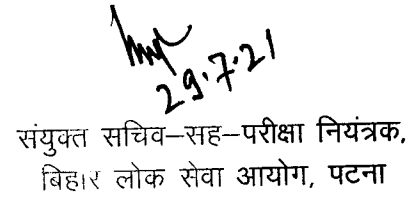 29.7.21
संयुक्त सचिव–सह–परीक्षा नियंत्रक,
बिहार लोक सेवा आयोग, पटना